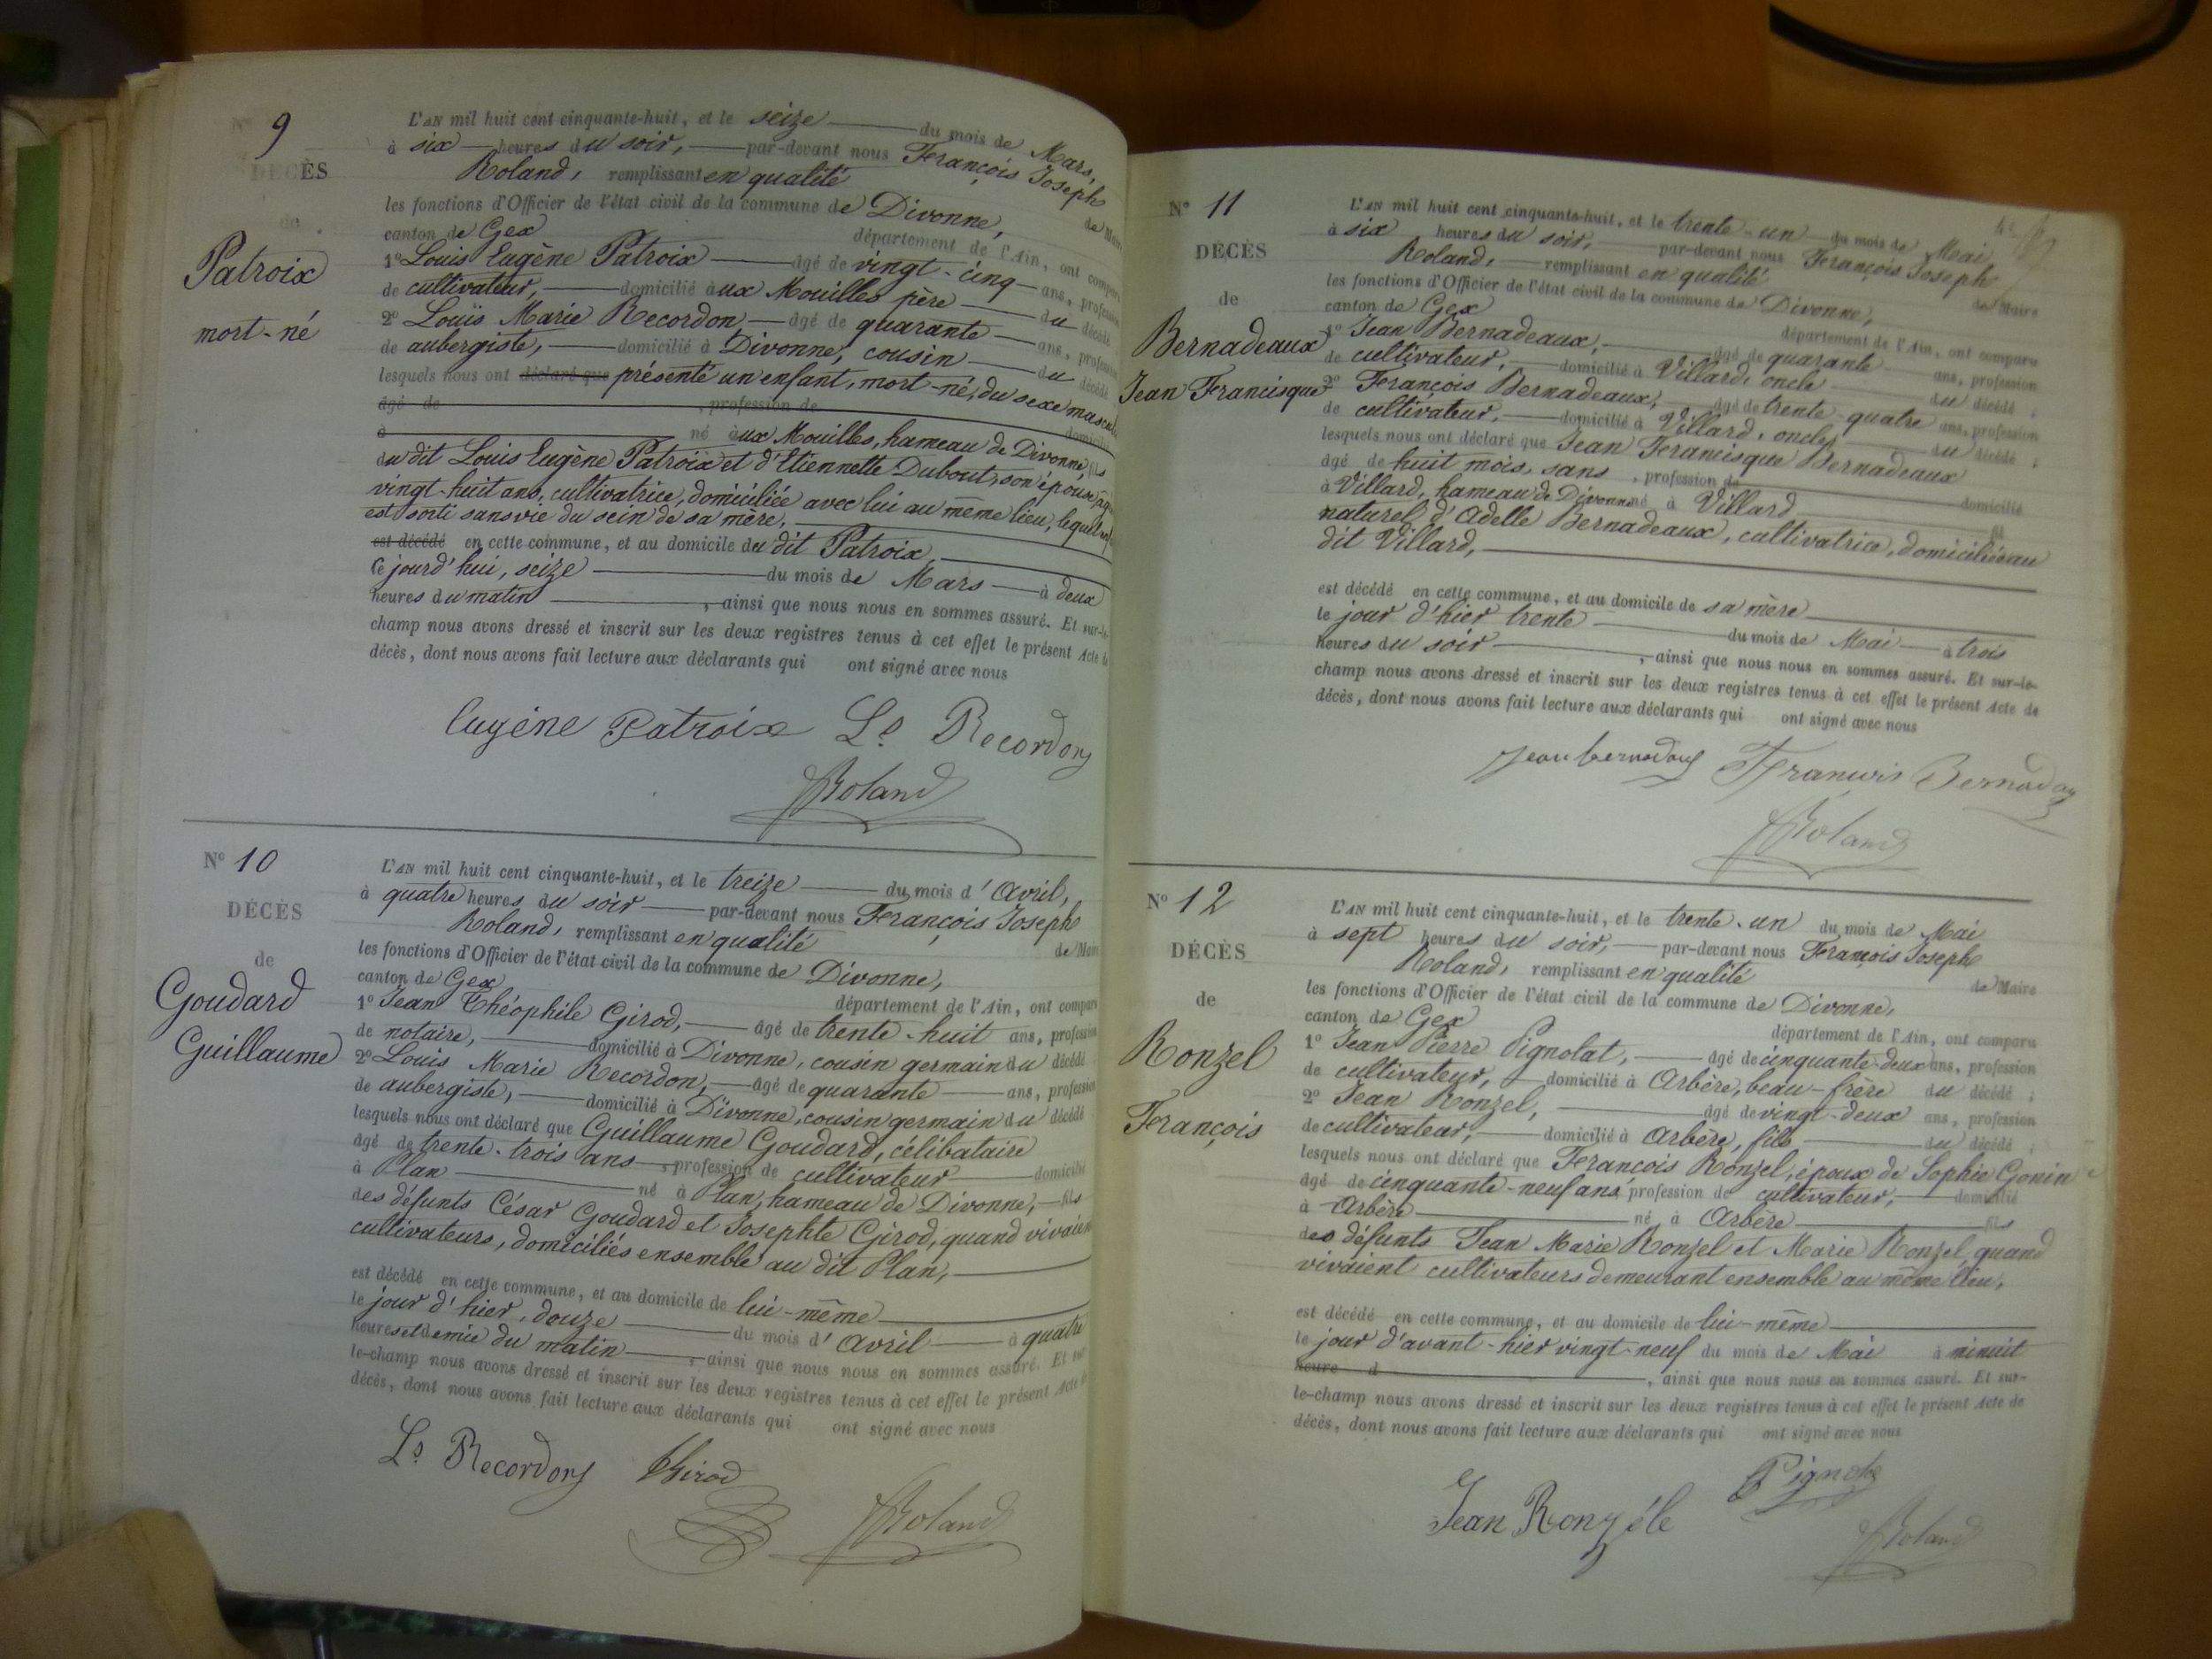 N° 9
DÉCÈS
de
Patroix
mort-né
L'AN mil huit cent cinquante-huit, et le seize du mois de Mars,
à six heures du soir, par-devant nous François Joseph
Roland, remplissant en qualité de Maire
les fonctions d'Officier de l'état civil de la commune de Divonne,
canton de Gex département de l'Ain, ont comparu
1° Louis Eugène Patroix âgé de vingt-cinq ans, profession
de cultivateur, domicilié aux Mouilles père du décédé
2° Louis Marie Recordon, âgé de quarante ans, profession
de aubergiste, domicilié à Divonne, cousin du décédé
lesquels nous ont déclaré que présenté un enfant, mort-né, du sexe mascul
âgé de , profession de domicilié
à né aux Mouilles, hameau de Divonne, fils
du dit Louis Eugène Patroix et d'Etiennette Dubout, son épouse, âgée
vingt-huit ans, cultivatrice, domiciliée avec lui au même lieu, lequel enf
est sorti sans vie du sein de sa mère,
est décédé en cette commune, et au domicile du dit Patroix
ce jourd'hui, seize du mois de Mars à deux
heures du matin , ainsi que nous nous en sommes assuré. Et sur-le-
champ nous avons dressé et inscrit sur les deux registres tenus à cet effet le présent Acte de
décès, dont nous avons fait lecture aux déclarants qui ont signé avec nous
Eugéne Patroix Ls Recordon
Roland
N° 10
DÉCÈS
de
Goudard
Guillaume
L'AN mil huit cent cinquante-huit, et le treize du mois d'Avril,
à quatre heures du soir par-devant nous François Joseph
Roland, remplissant en qualité de Maire
les fonctions d'Officier de l'état civil de la commune de Divonne,
canton de Gex département de l'Ain, ont comparu
1° Jean Théophile Girod, âgé de trente-huit ans, profession
de notaire, domicilié à Divonne, cousin germain du décédé
2° Louis Marie Recordon, âgé de quarante ans, profession
de aubergiste, domicilié à Divonne, cousin germain du décédé
lesquels nous ont déclaré que Guillaume Goudard, célibataire
âgé de trente-trois ans, profession de cultivateur domicilié
à Plan né à Plan, hameau de Divonne, fils
des défunts César Goudard et Josephte Girod, quand vivaient
cultivateurs, domiciliés ensemble au dit Plan,
est décédé en cette commune, et au domicile de lui-même
le jour d'hier, douze du mois d'Avril à quatre
heures et demie du matin , ainsi que nous nous en sommes assuré. Et sur
le-champ nous avons dressé et inscrit sur les deux registres tenus à cet effet le présent Acte de
décès, dont nous avons fait lecture aux déclarants qui ont signé avec nous
Ls Recordon Girod
Roland
N° 11
DÉCÈS
de
Bernadeaux
Jean Francisque
L'AN mil huit cent cinquante-huit, et le trente-un du mois de Mai
à six heures du soir, par-devant nous François Joseph
Roland, remplissant en qualité de Maire
les fonctions d'Officier de l'état civil de la commune de Divonne,
canton de Gex département de l'Ain, ont comparu
1° Jean Bernadeaux, âgé de quarante ans, profession
de cultivateur, domicilié à Villard, oncle du décédé ;
2° François Bernadeaux, âgé de trente-quatre ans, profession
de cultivateur, domicilié à Villard, oncle, du décédé ;
lesquels nous ont déclaré que Jean Francisque Bernadeaux
âgé de huit mois, sans , profession de domicilié
à Villard, hameau de Divonne né à Villard fils
naturel d'Adelle Bernadeaux, cultivatrice, domiciliée au
dit Villard,
est décédé en cette commune, et au domicile de sa mère
le jour d'hier trente du mois de Mai à trois
heures du soir , ainsi que nous nous en sommes assuré. Et sur-le-
champ nous avons dressé et inscrit sur les deux registres tenus à cet effet le présent Acte de
décès, dont nous avons fait lecture aux déclarants qui ont signé avec nous
Jean bernadaux François Bernadaux
Roland
N° 12
DÉCÈS
de
Ronzel
François
L'AN mil huit cent cinquante-huit, et le trente-un du mois de Mai
à sept heures du soir, par-devant nous François Joseph
Roland, remplissant en qualité de Maire
les fonctions d'Officier de l'état civil de la commune de Divonne,
canton de Gex département de l'Ain, ont comparu
1° Jean Pierre Pignolat, âgé de cinquante-deux ans, profession
de cultivateur, domicilié à Arbère, beau-frère du décédé ;
2° Jean Ronzel, âgé de vingt-deux ans, profession
de cultivateur, domicilié à Arbère, fils du décédé ;
lesquels nous ont déclaré que François Ronzel, époux de Sophie Gonin
âgé de cinquante-neuf ans, profession de cultivateur, domicilié
à Arbère né à Arbère fils
des défunts Jean Marie Ronzel et Marie Ronzel, quand
vivaient cultivateurs demeurant ensemble au même lieu,
est décédé en cette commune, et au domicile de lui-même
le jour d'avant-hier vingt-neuf du mois de Mai à minuit
heure d , ainsi que nous nous en sommes assuré. Et sur-
le-champ nous avons dressé et inscrit sur les deux registres tenus à cet effet le présent Acte de
décès, dont nous avons fait lecture aux déclarants qui ont signé avec nous
Jean Ronzéle
Roland